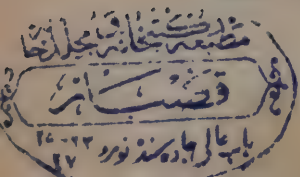 مطبعه كتبخانه و مجلدخانه
قصبار
باب عالی جاده سنده نومرو ٢٣-٢٥
٢٧